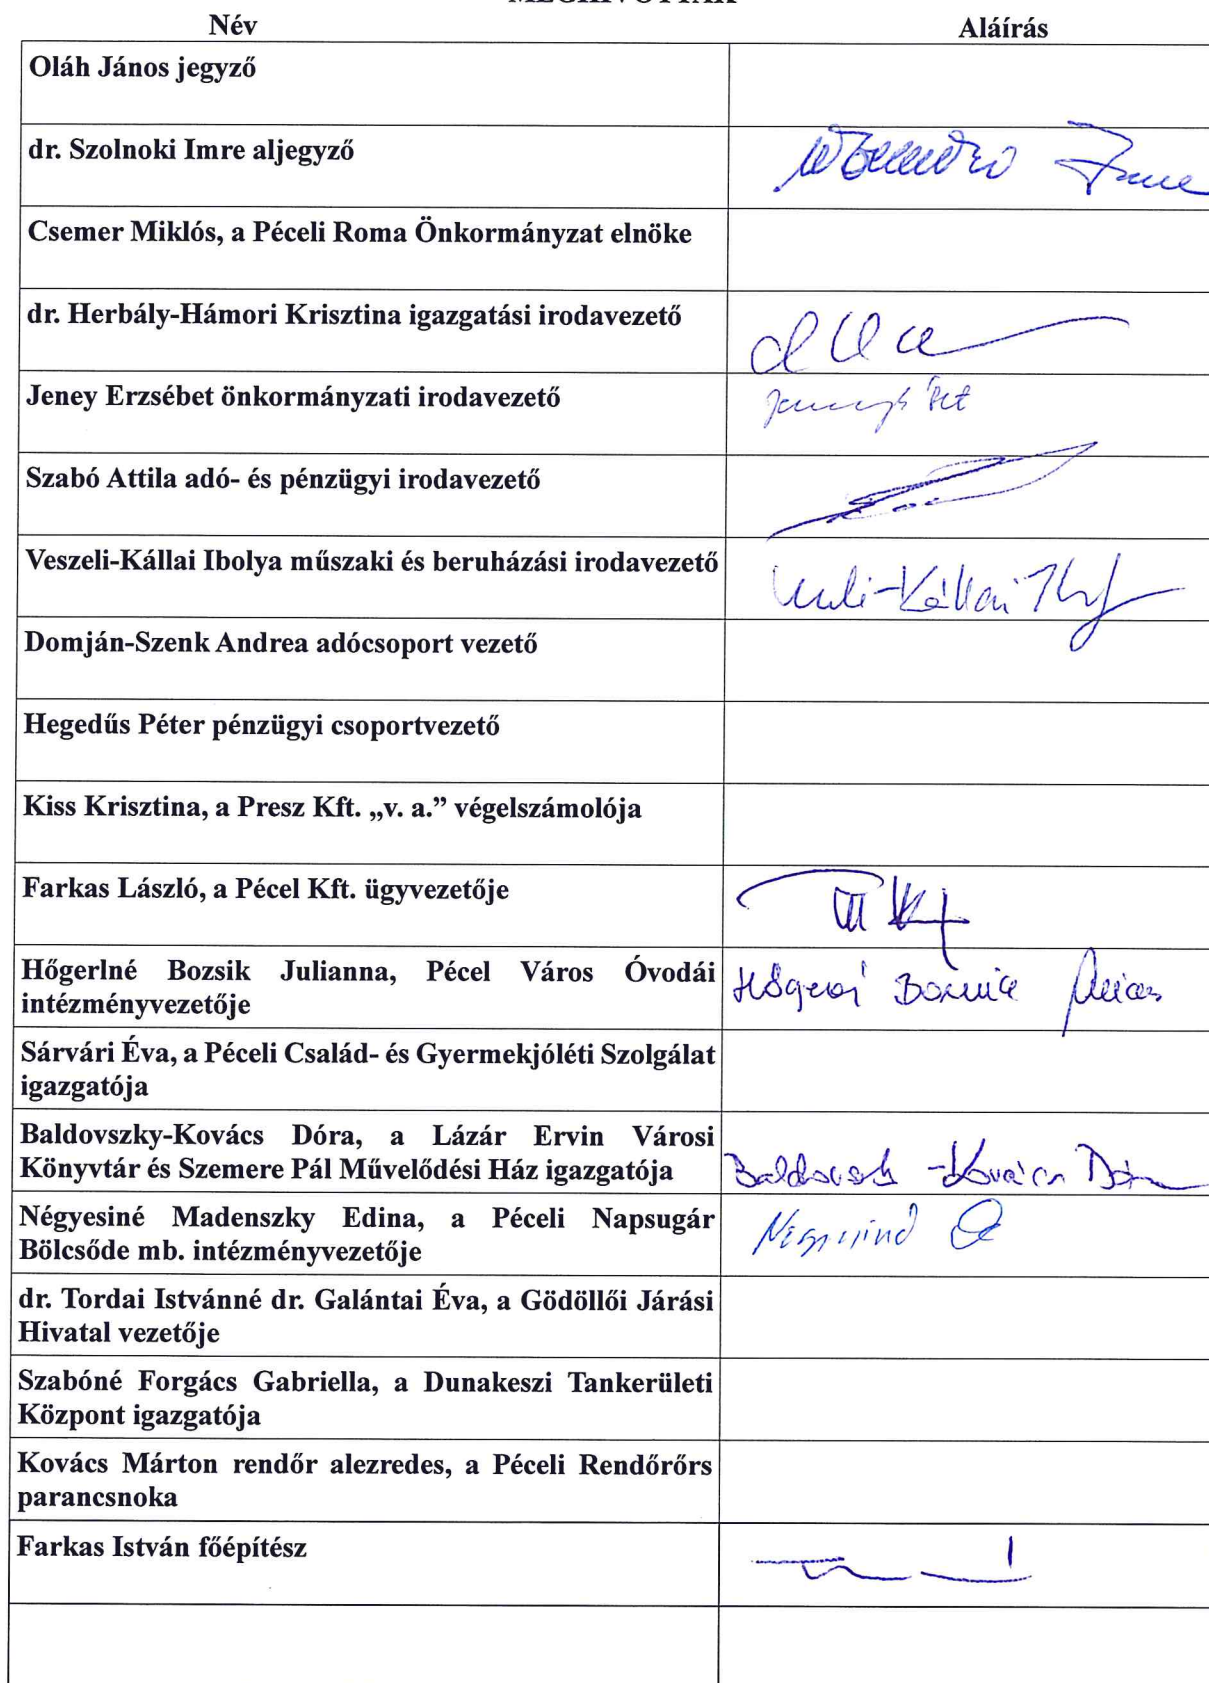 Név Aláírás
Oláh János jegyző
dr. Szolnoki Imre aljegyző
Imre
Csemer Miklós, a Péceli Roma Önkormányzat elnöke
dr. Herbály-Hámori Krisztina igazgatási irodavezető
Jeney Erzsébet önkormányzati irodavezető
Szabó Attila adó- és pénzügyi irodavezető
Veszeli-Kállai Ibolya műszaki és beruházási irodavezető
Domján-Szenk Andrea adócsoport vezető
Hegedűs Péter pénzügyi csoportvezető
Kiss Krisztina, a Presz Kft. „v. a.” végelszámolója
Farkas László, a Pécel Kft. ügyvezetője
Hőgerlné Bozsik Julianna, Pécel Város Óvodái
intézményvezetője
Sárvári Éva, a Péceli Család- és Gyermekjóléti Szolgálat
igazgatója
Baldovszky-Kovács Dóra, a Lázár Ervin Városi
Könyvtár és Szemere Pál Művelődési Ház igazgatója
Négyesiné Madenszky Edina, a Péceli Napsugár
Bölcsőde mb. intézményvezetője
dr. Tordai Istvánné dr. Galántai Éva, a Gödöllői Járási
Hivatal vezetője
Szabóné Forgács Gabriella, a Dunakeszi Tankerületi
Központ igazgatója
Kovács Márton rendőr alezredes, a Péceli Rendőrőrs
parancsnoka
Farkas István főépítész